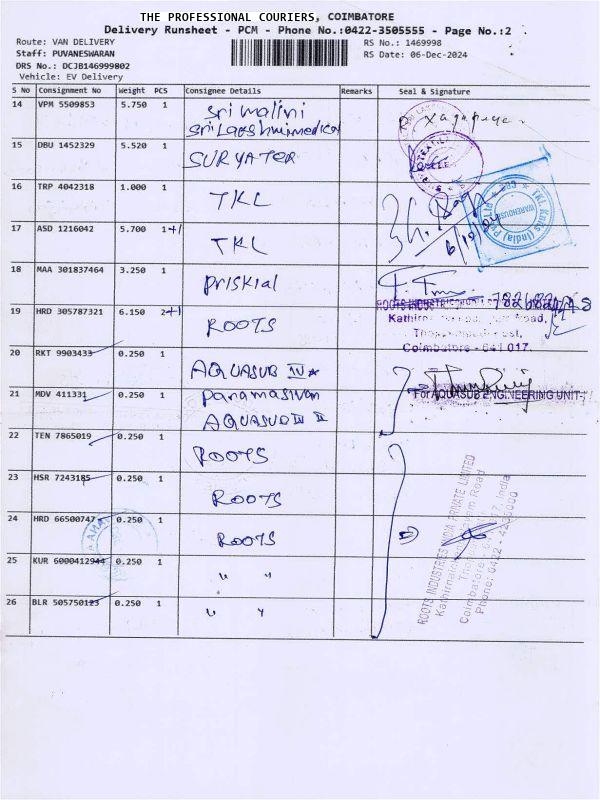 THE PROFESSIONAL COURIERS, COIMBATORE
Delivery Runsheet - PCM - Phone No.:0422-3505555 - Page No.:2
Route: VAN DELIVERY
RS No.: 1469998
Staff: PUVANESWARAN
RS Date: 06-Dec-2024
DRS No.: DCJB146999802
Vehicle: EV Delivery
S No Consignment No Weight PCS Consignee Details Remarks Seal & Signature
14 VPM 5509853 5.750 1 Sri Malini
Sri Lakshmi medical
15 DBU 1452329 5.520 1 SURYATER
16 TRP 4042318 1.000 1 TKL
17 ASD 1216042 5.700 1+1 TKL
18 MAA 301837464 3.250 1 Priskial
19 HRD 305787321 6.150 2+1 ROOTS
20 RKT 9903433 0.250 1 AQUASUB IV
21 MDV 411331 0.250 1 Paramasivan
AQUASUB II
22 TEN 7865019 0.250 1 ROOTS
23 HSR 7243185 0.250 1 ROOTS
24 HRD 66500747 0.250 1 ROOTS
25 KUR 6000412944 0.250 1 " "
26 BLR 505750123 0.250 1 " "
TKL Knits (India) P
WAREHOUSE
6/12/24
ROOTS INDUSTRIES
Road,
Coimbatore - 641 017.
For AQUASUB ENGINEERING UNIT-
ROOTS INDUSTRIES INDIA PRIVATE LIMITED